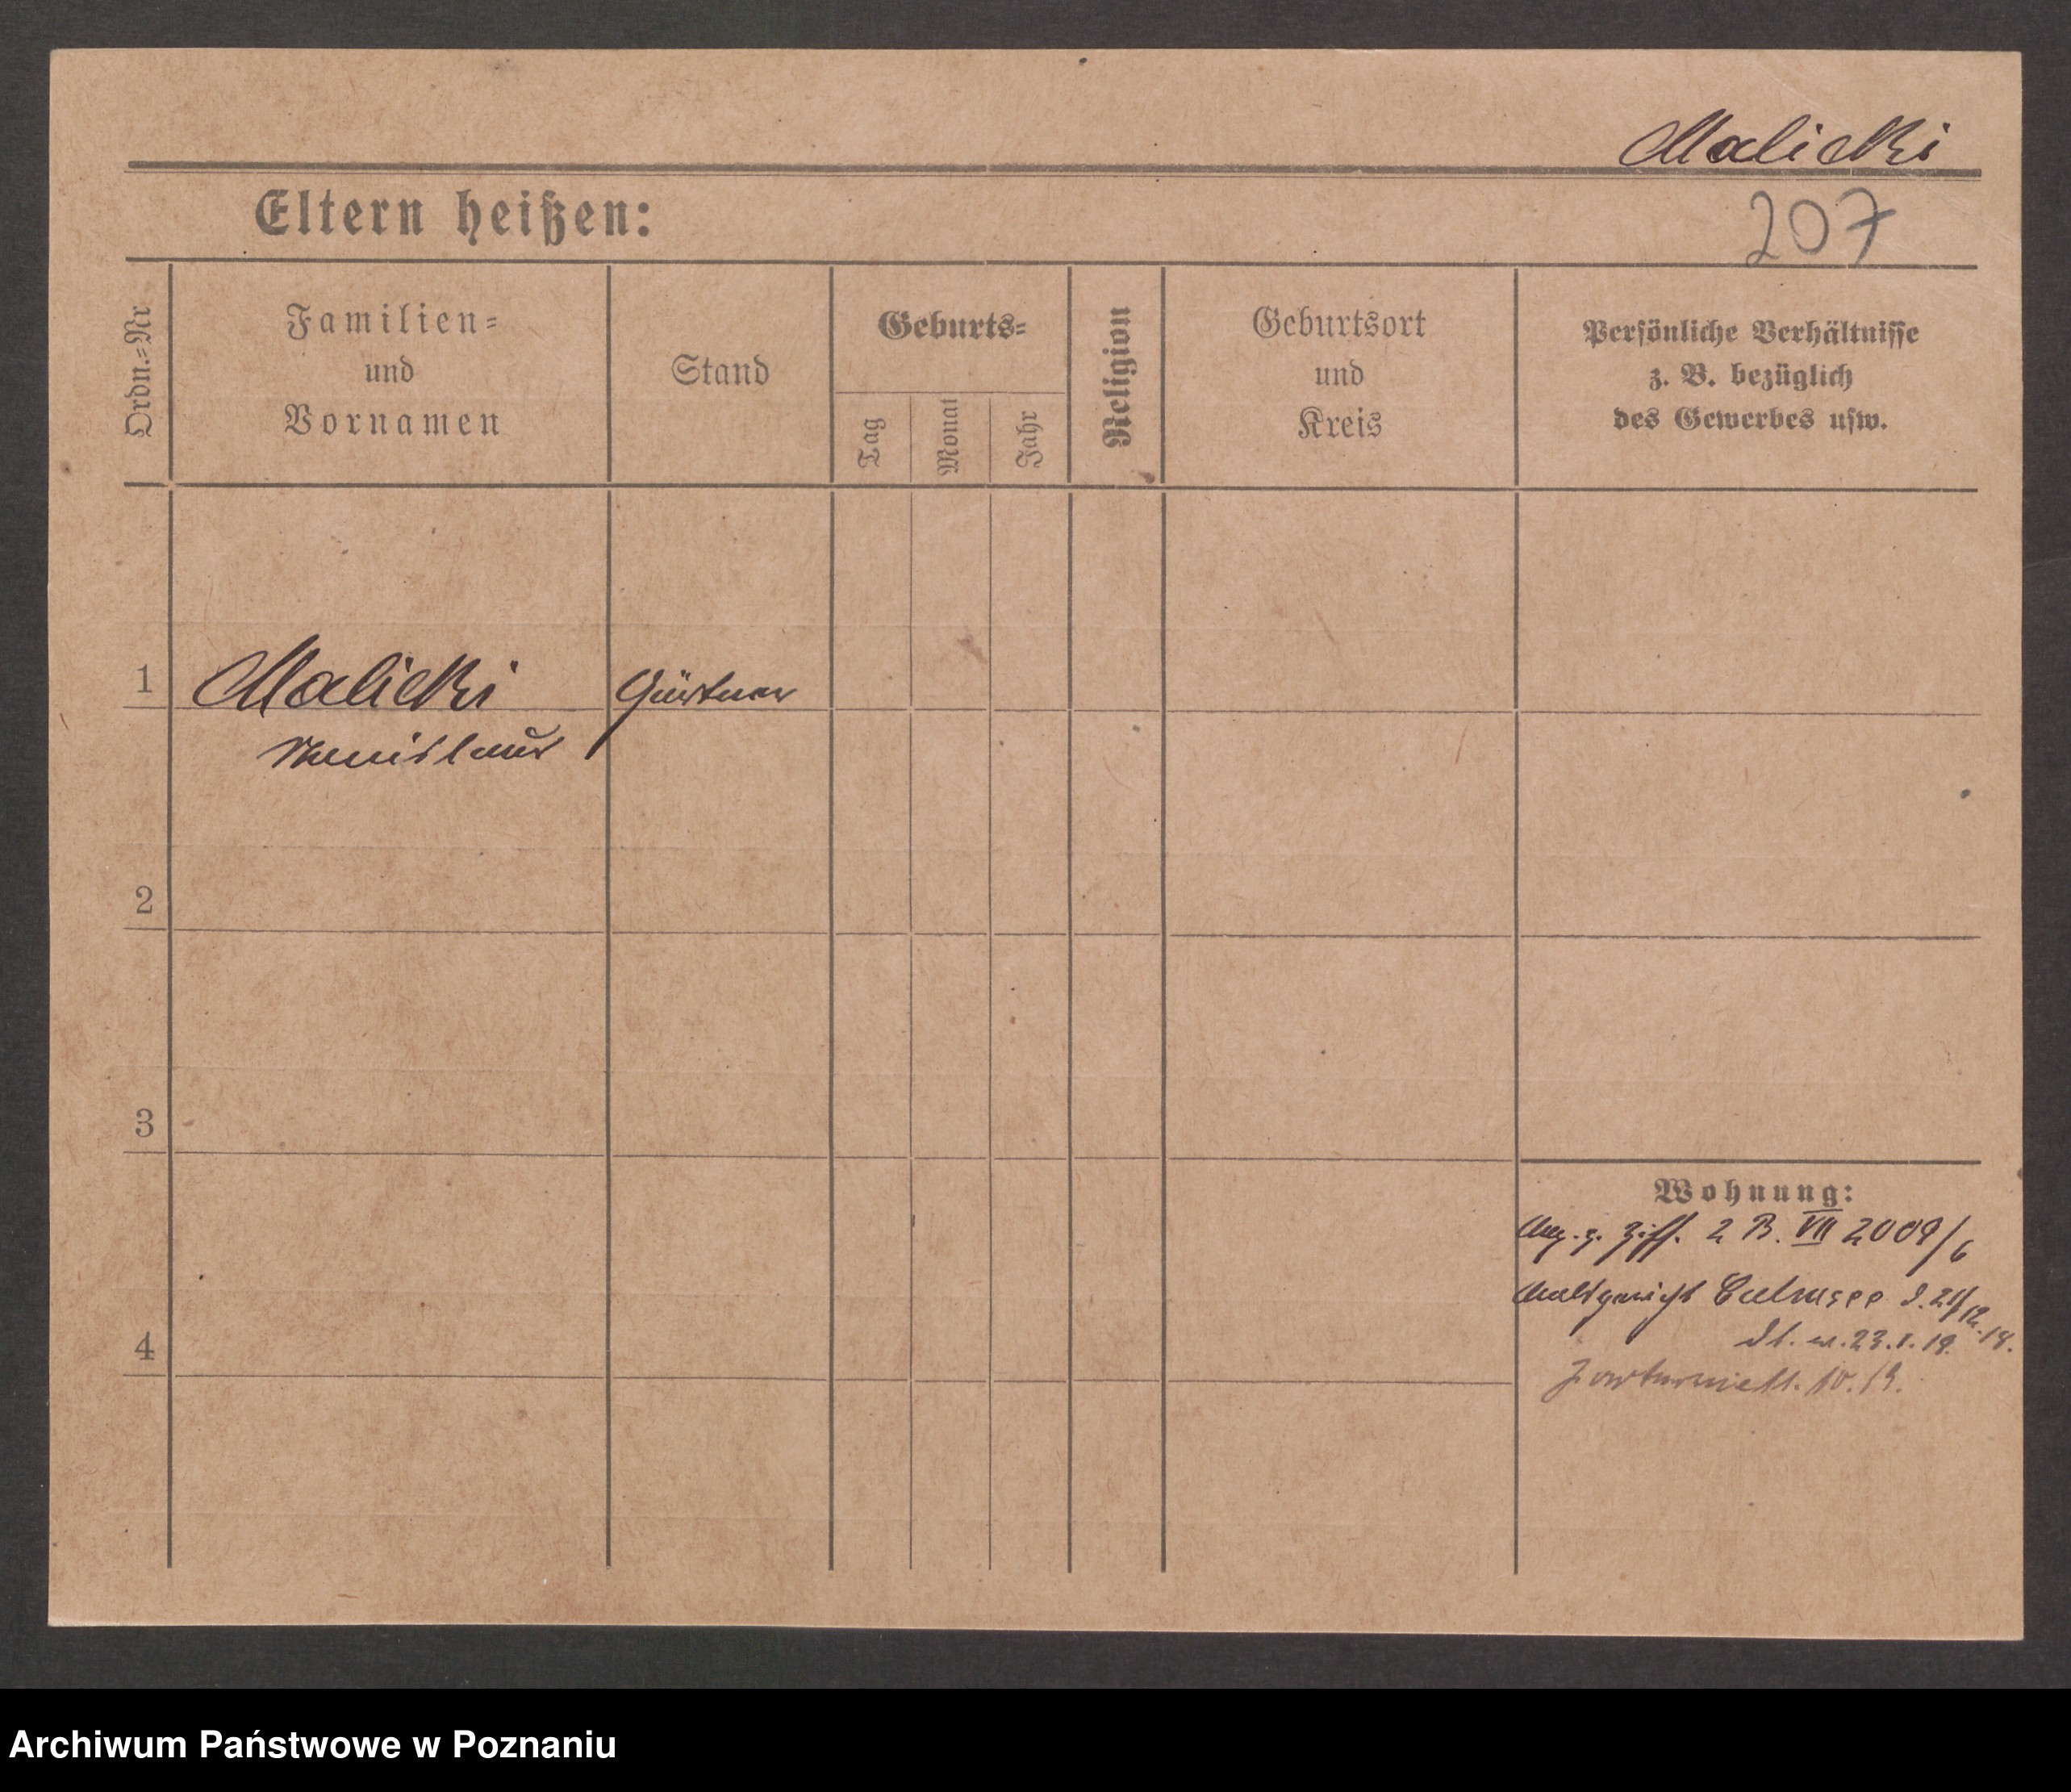 Malicki
Eltern heißen:
207
Ordn.=Nr
Familien=
und
Vornamen
Stand
Geburts=
Tag
Monat
Jahr
Religion
Geburtsort
und
Kreis
Persönliche Verhältnisse
z. B. bezüglich
des Gewerbes usw.
1
Malicki
Gärtner
Stanislaus
2
3
4
Wohnung:
Ziff. 2 B. VII 2009/6
Amtsgericht Culmsee
23.1.19.
10.19.
Archiwum Państwowe w Poznaniu